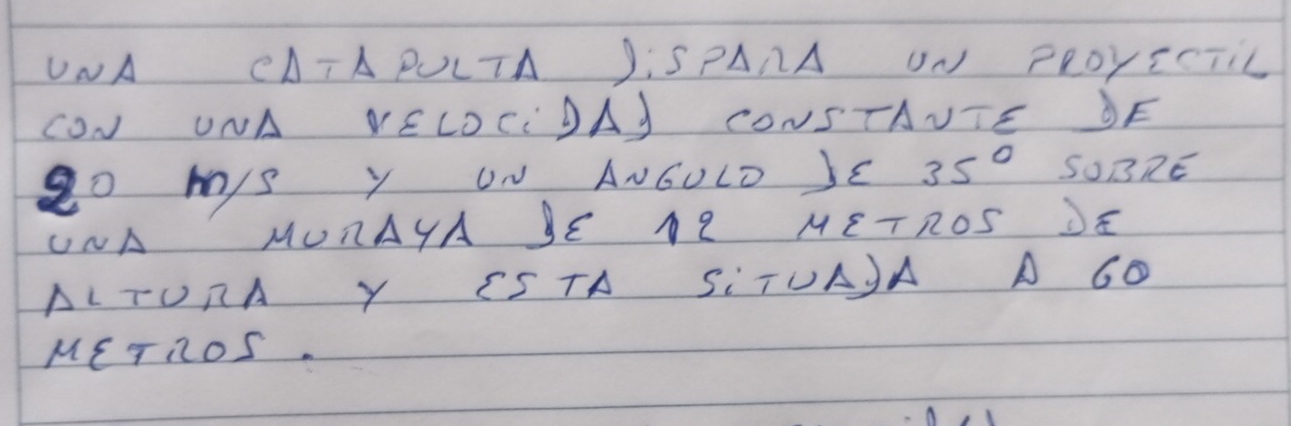 UNA CATAPULTA DiSPARA UN PROYECTiL
CON UNA VELOCiDAD CONSTANTE DE
20 m/s Y UN ANGULO DE 35° SOBRE
UNA MURAYA DE 12 METROS DE
ALTURA Y ESTA SiTUADA A 60
METROS.